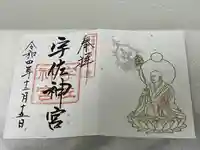 奉拝
宇佐神宮
令和四年十二月十五日